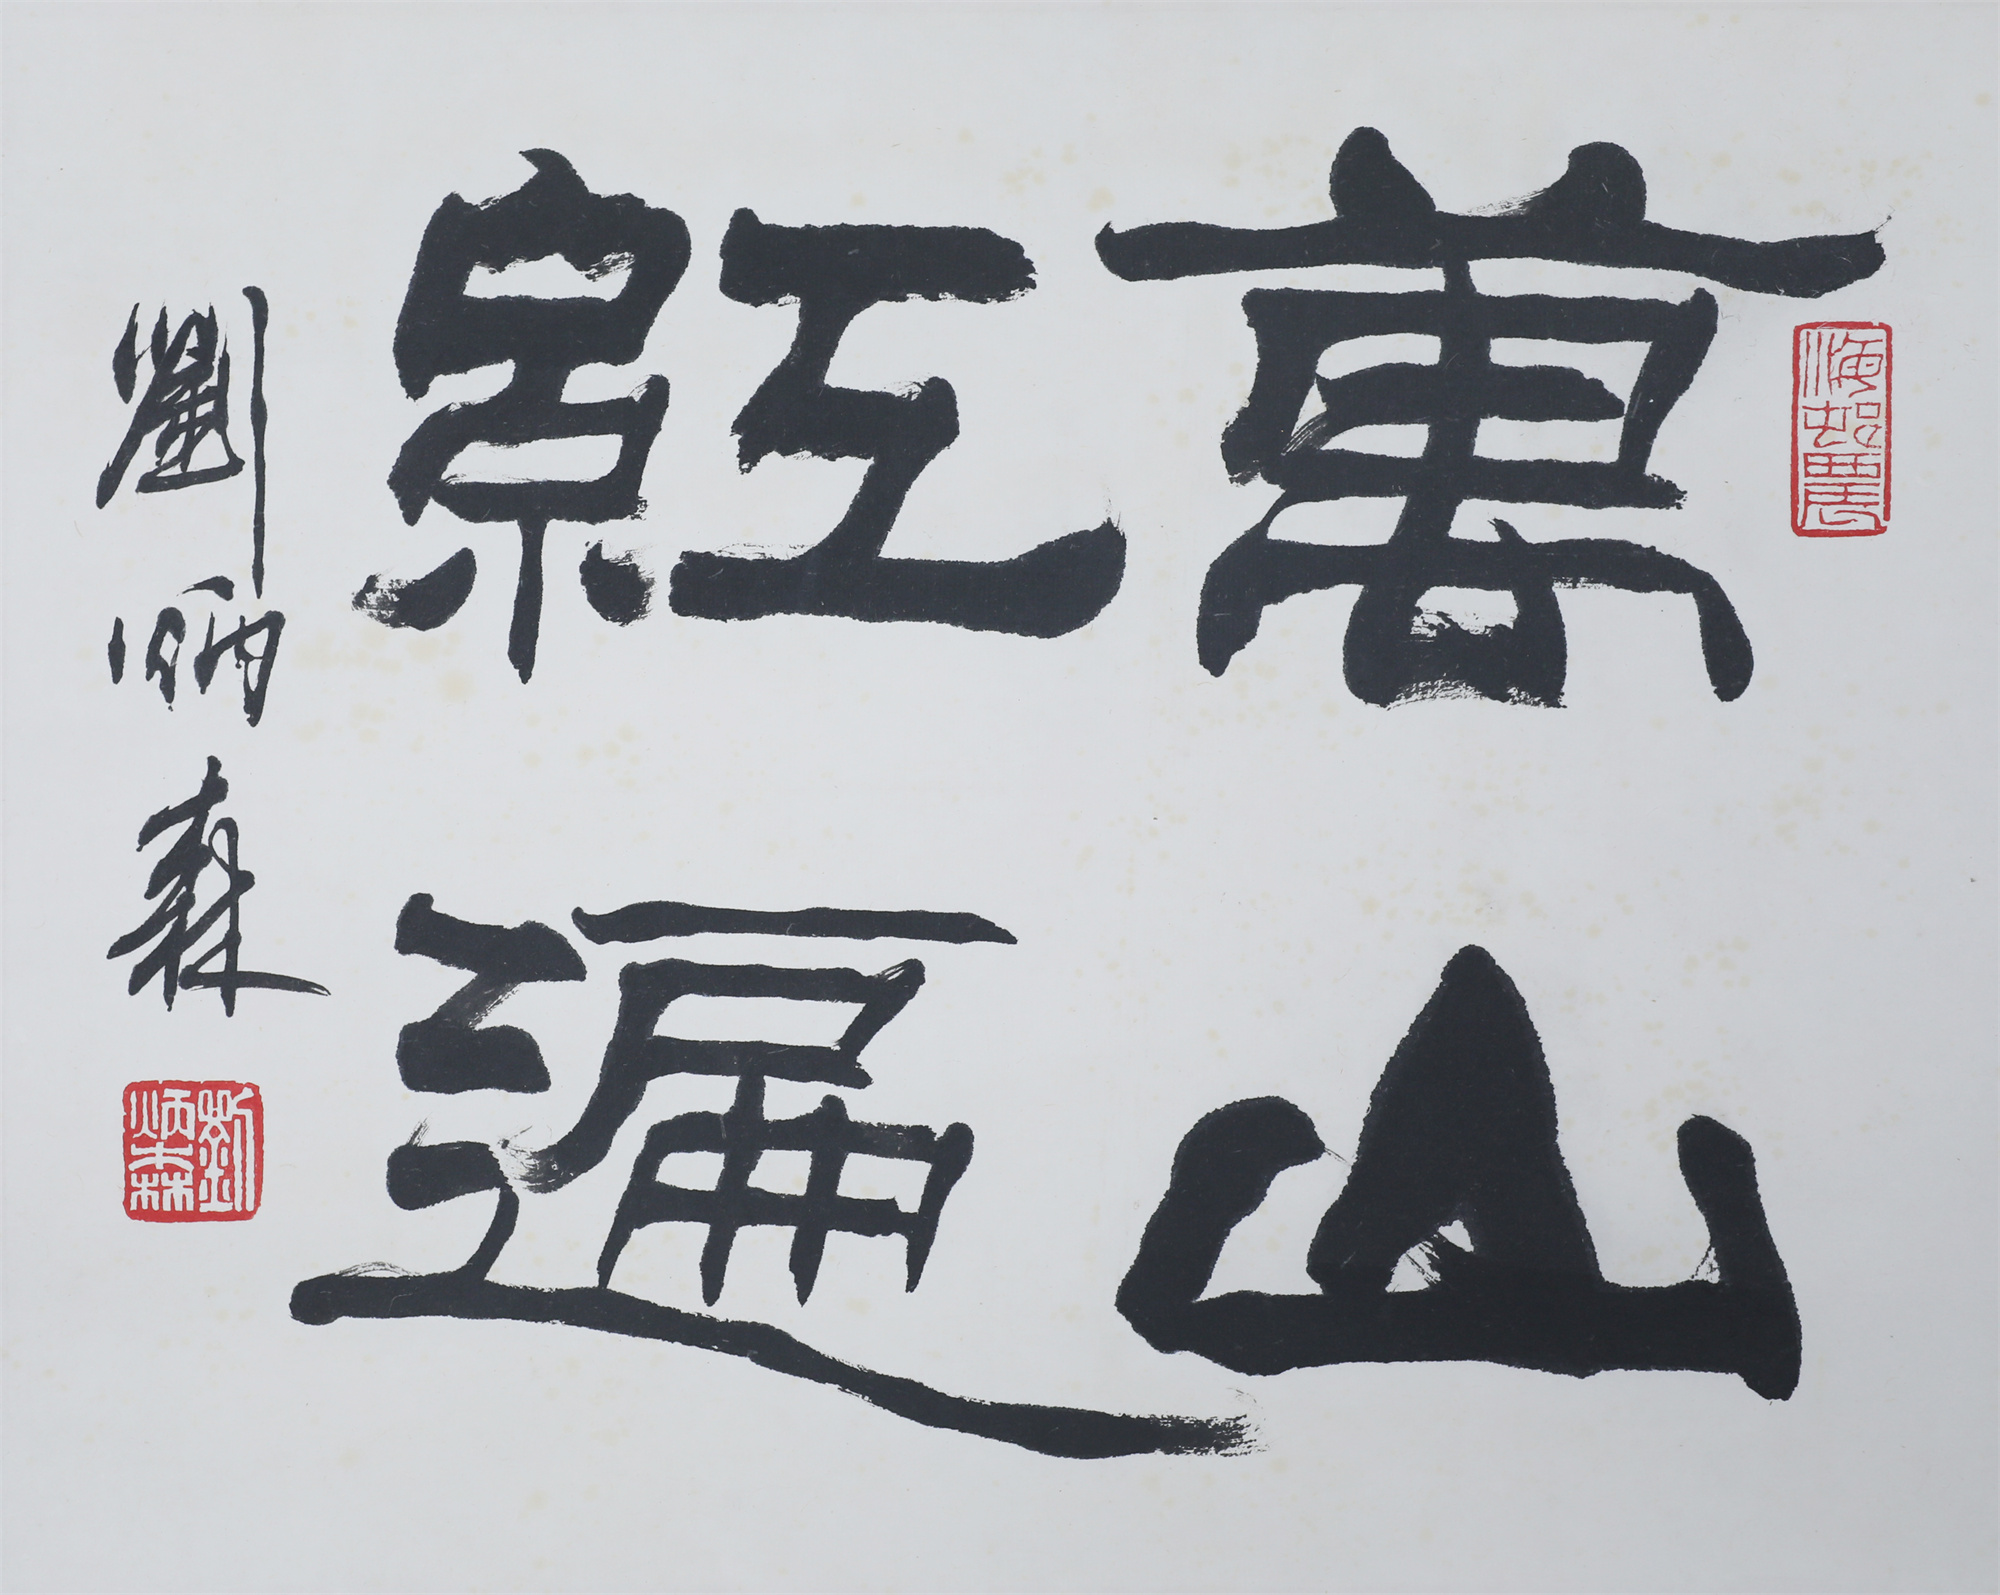 萬山
紅遍
劉炳森
劉炳森